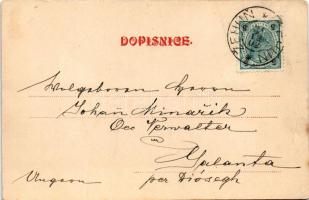 DOPISNICE.
ZEHUN
Wolgeboren Herrn
Johañ Minařik
Oec Verwalter
in
Galanta
Ungarn per Diószegh